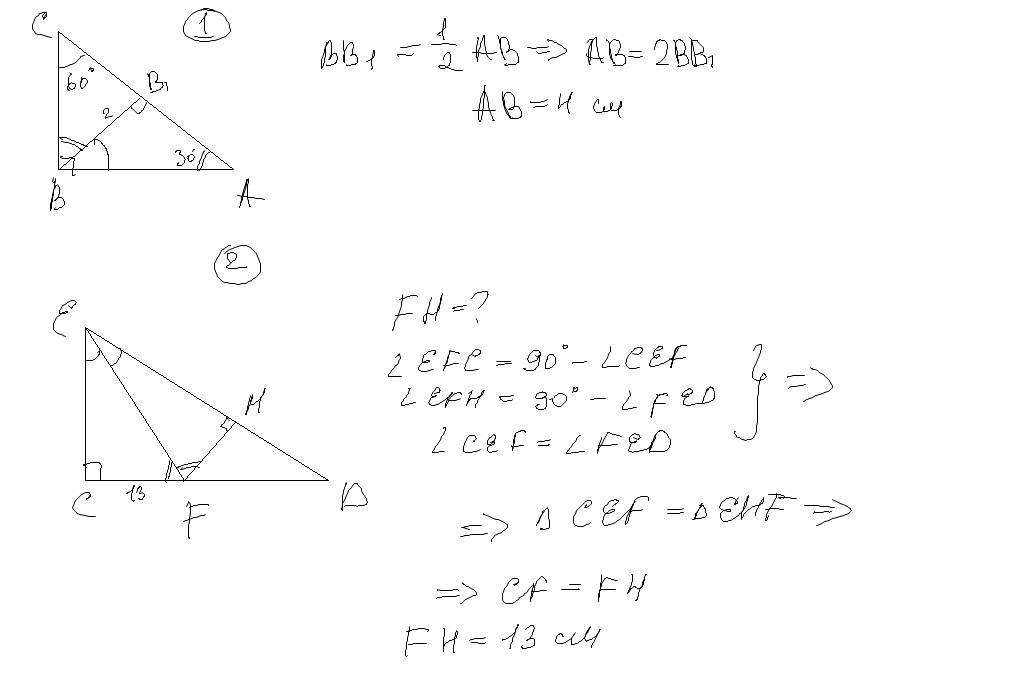 1
C
60°
B₁
2
30°
B
A
BB₁ = 1/2 AB => AB = 2BB₁
AB = 4 см
2
E
H
C
13
F
D
FH = ?
∠EFC = 90° - ∠CEF
∠EFH = 90° - ∠FED
∠CEF = ∠FED
} =>
=> Δ CEF = Δ EHF =>
=> CF = FH
FH = 13 см